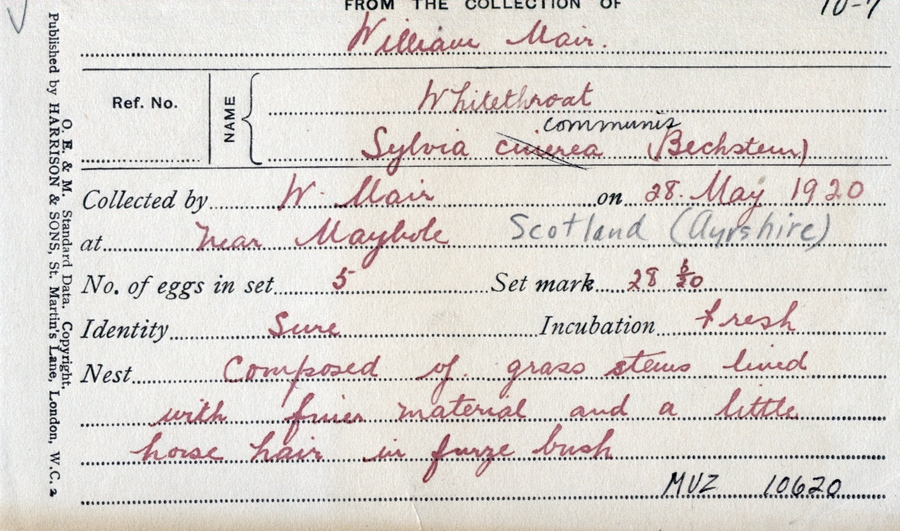 FROM THE COLLECTION OF
William Mair.
Ref. No.
NAME
Whitethroat
communis
Sylvia cinerea (Bechstein)
Collected by W. Mair on 28. May 1920
at near Maybole Scotland (Ayrshire)
No. of eggs in set 5 Set mark 28 5/20
Identity Sure Incubation fresh
Nest Composed of grass stems lined
with finer material and a little
horse hair in furze bush
MVZ 10620
O. E. & M. Standard Data. Copyright.
Published by HARRISON & SONS, St. Martin's Lane, London, W.C. 2